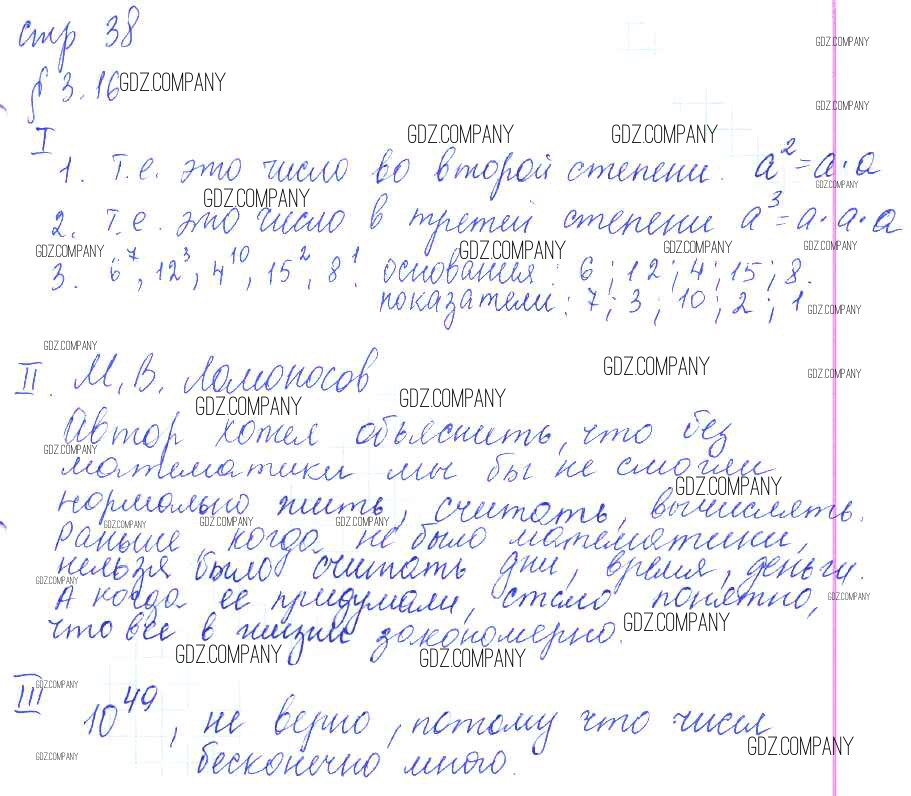 стр 38
§ 3.16 GDZ.COMPANY
GDZ.COMPANY
GDZ.COMPANY
I GDZ.COMPANY GDZ.COMPANY
1. Т.е. это число во второй степени. a² = a · a
GDZ.COMPANY GDZ.COMPANY
2. Т.е. это число в третей степени a³ = a · a · a
GDZ.COMPANY GDZ.COMPANY GDZ.COMPANY GDZ.COMPANY
3. 6⁷, 12³, 4¹⁰, 15², 8¹. основания: 6; 12; 4; 15; 8.
показатели: 7; 3; 10; 2; 1 GDZ.COMPANY
GDZ.COMPANY
II. М. В. Ломоносов GDZ.COMPANY GDZ.COMPANY
GDZ.COMPANY GDZ.COMPANY
Автор хотел объяснить, что без
GDZ.COMPANY
математики мы бы не смогли
GDZ.COMPANY
нормально жить, считать, вычислять.
GDZ.COMPANY GDZ.COMPANY GDZ.COMPANY
Раньше, когда не было математики,
нельзя было считать дни, время, деньги.
GDZ.COMPANY
А когда ее придумали, стало понятно,
GDZ.COMPANY
что все в жизни закономерно. GDZ.COMPANY
GDZ.COMPANY GDZ.COMPANY
III GDZ.COMPANY
10⁴⁹, не верно, потому что чисел
GDZ.COMPANY GDZ.COMPANY
бесконечно много.